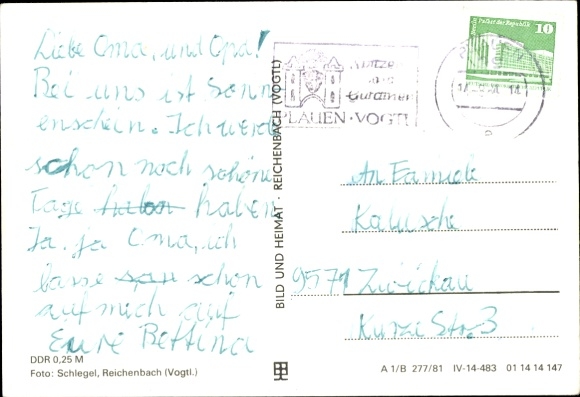 Liebe Oma, und Opa!
Bei uns ist Sonn
enschein. Ich werde
schon noch schöne
Tage haben haben
Ja, ja Oma, ich
basse schon
auf mich auf
Eure Bettina
DDR 0,25 M
Foto: Schlegel, Reichenbach (Vogtl.)
BILD UND HEIMAT REICHENBACH (VOGTL)
Spitze
und
Gardinen
PLAUEN · VOGTL
Palast der Republik
10
An Familie
Kalusche
9571 Zwickau
Kurze Str. 3
A 1/B 277/81 IV-14-483 01 14 14 147